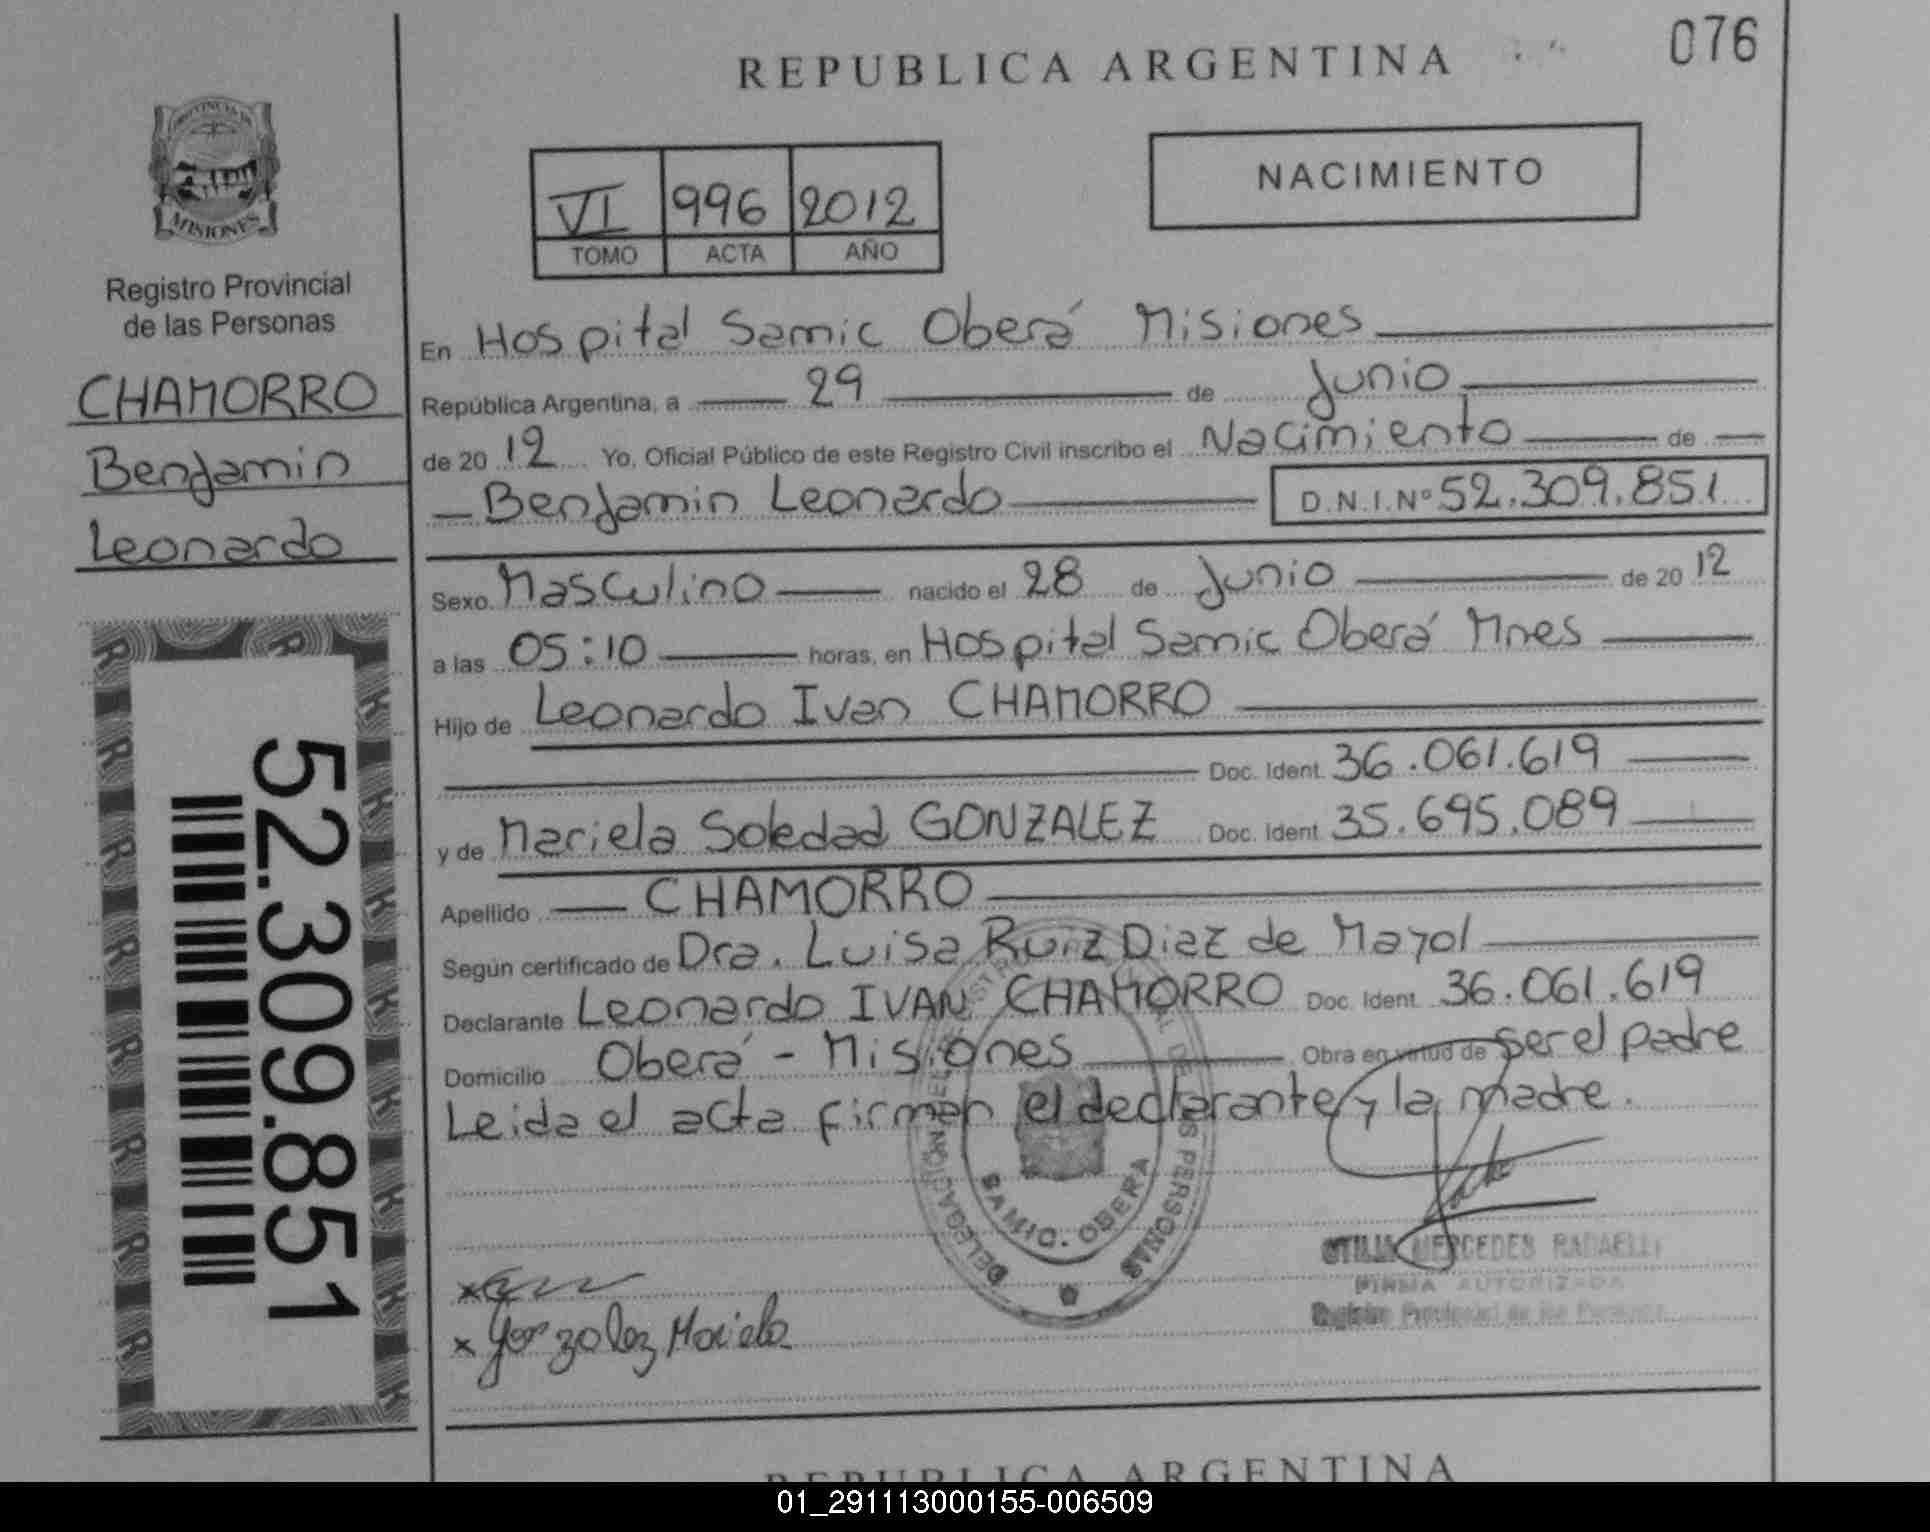 REPUBLICA ARGENTINA
076
PROVINCIA DE
MISIONES
Registro Provincial
de las Personas
CHAMORRO
Benjamin
Leonardo
52.309.851
VI 996 2012
TOMO ACTA AÑO
NACIMIENTO
En Hospital Samic Oberá Misiones
República Argentina, a 29 de Junio
de 20 12 Yo, Oficial Público de este Registro Civil inscribo el Nacimiento de
Benjamin Leonardo D.N.I.Nº 52.309.851
Sexo Masculino nacido el 28 de Junio de 20 12
a las 05:10 horas, en Hospital Samic Oberá Mnes
Hijo de Leonardo Ivan CHAMORRO
Doc. Ident. 36.061.619
y de Mariela Soledad GONZALEZ Doc. Ident. 35.695.089
Apellido CHAMORRO
Según certificado de Dra. Luisa Ruiz Diaz de Mayol
Declarante Leonardo IVAN CHAMORRO Doc. Ident. 36.061.619
Domicilio Oberá - Misiones Obra en virtud de ser el padre
Leida el acta firman el declarante y la madre.
DELEGACIÓN DE LAS PERSONAS
SAMIC. OBERA
MERCEDES RADAELLI
FIRMA AUTORIZADA
Registro Provincial de las Personas
x
x Gonzalez Mariela
REPUBLICA ARGENTINA
01_291113000155-006509